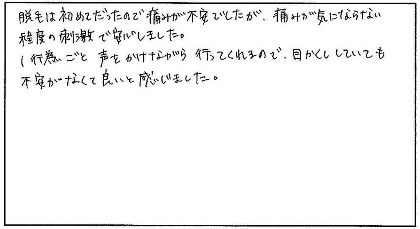 脱毛は初めてだったので痛みが不安でしたが、痛みが気にならない
程度の刺激で安心しました。
1行為ごと声をかけながら行ってくれるので、目かくししていても
不安がなくて良いと感じました。